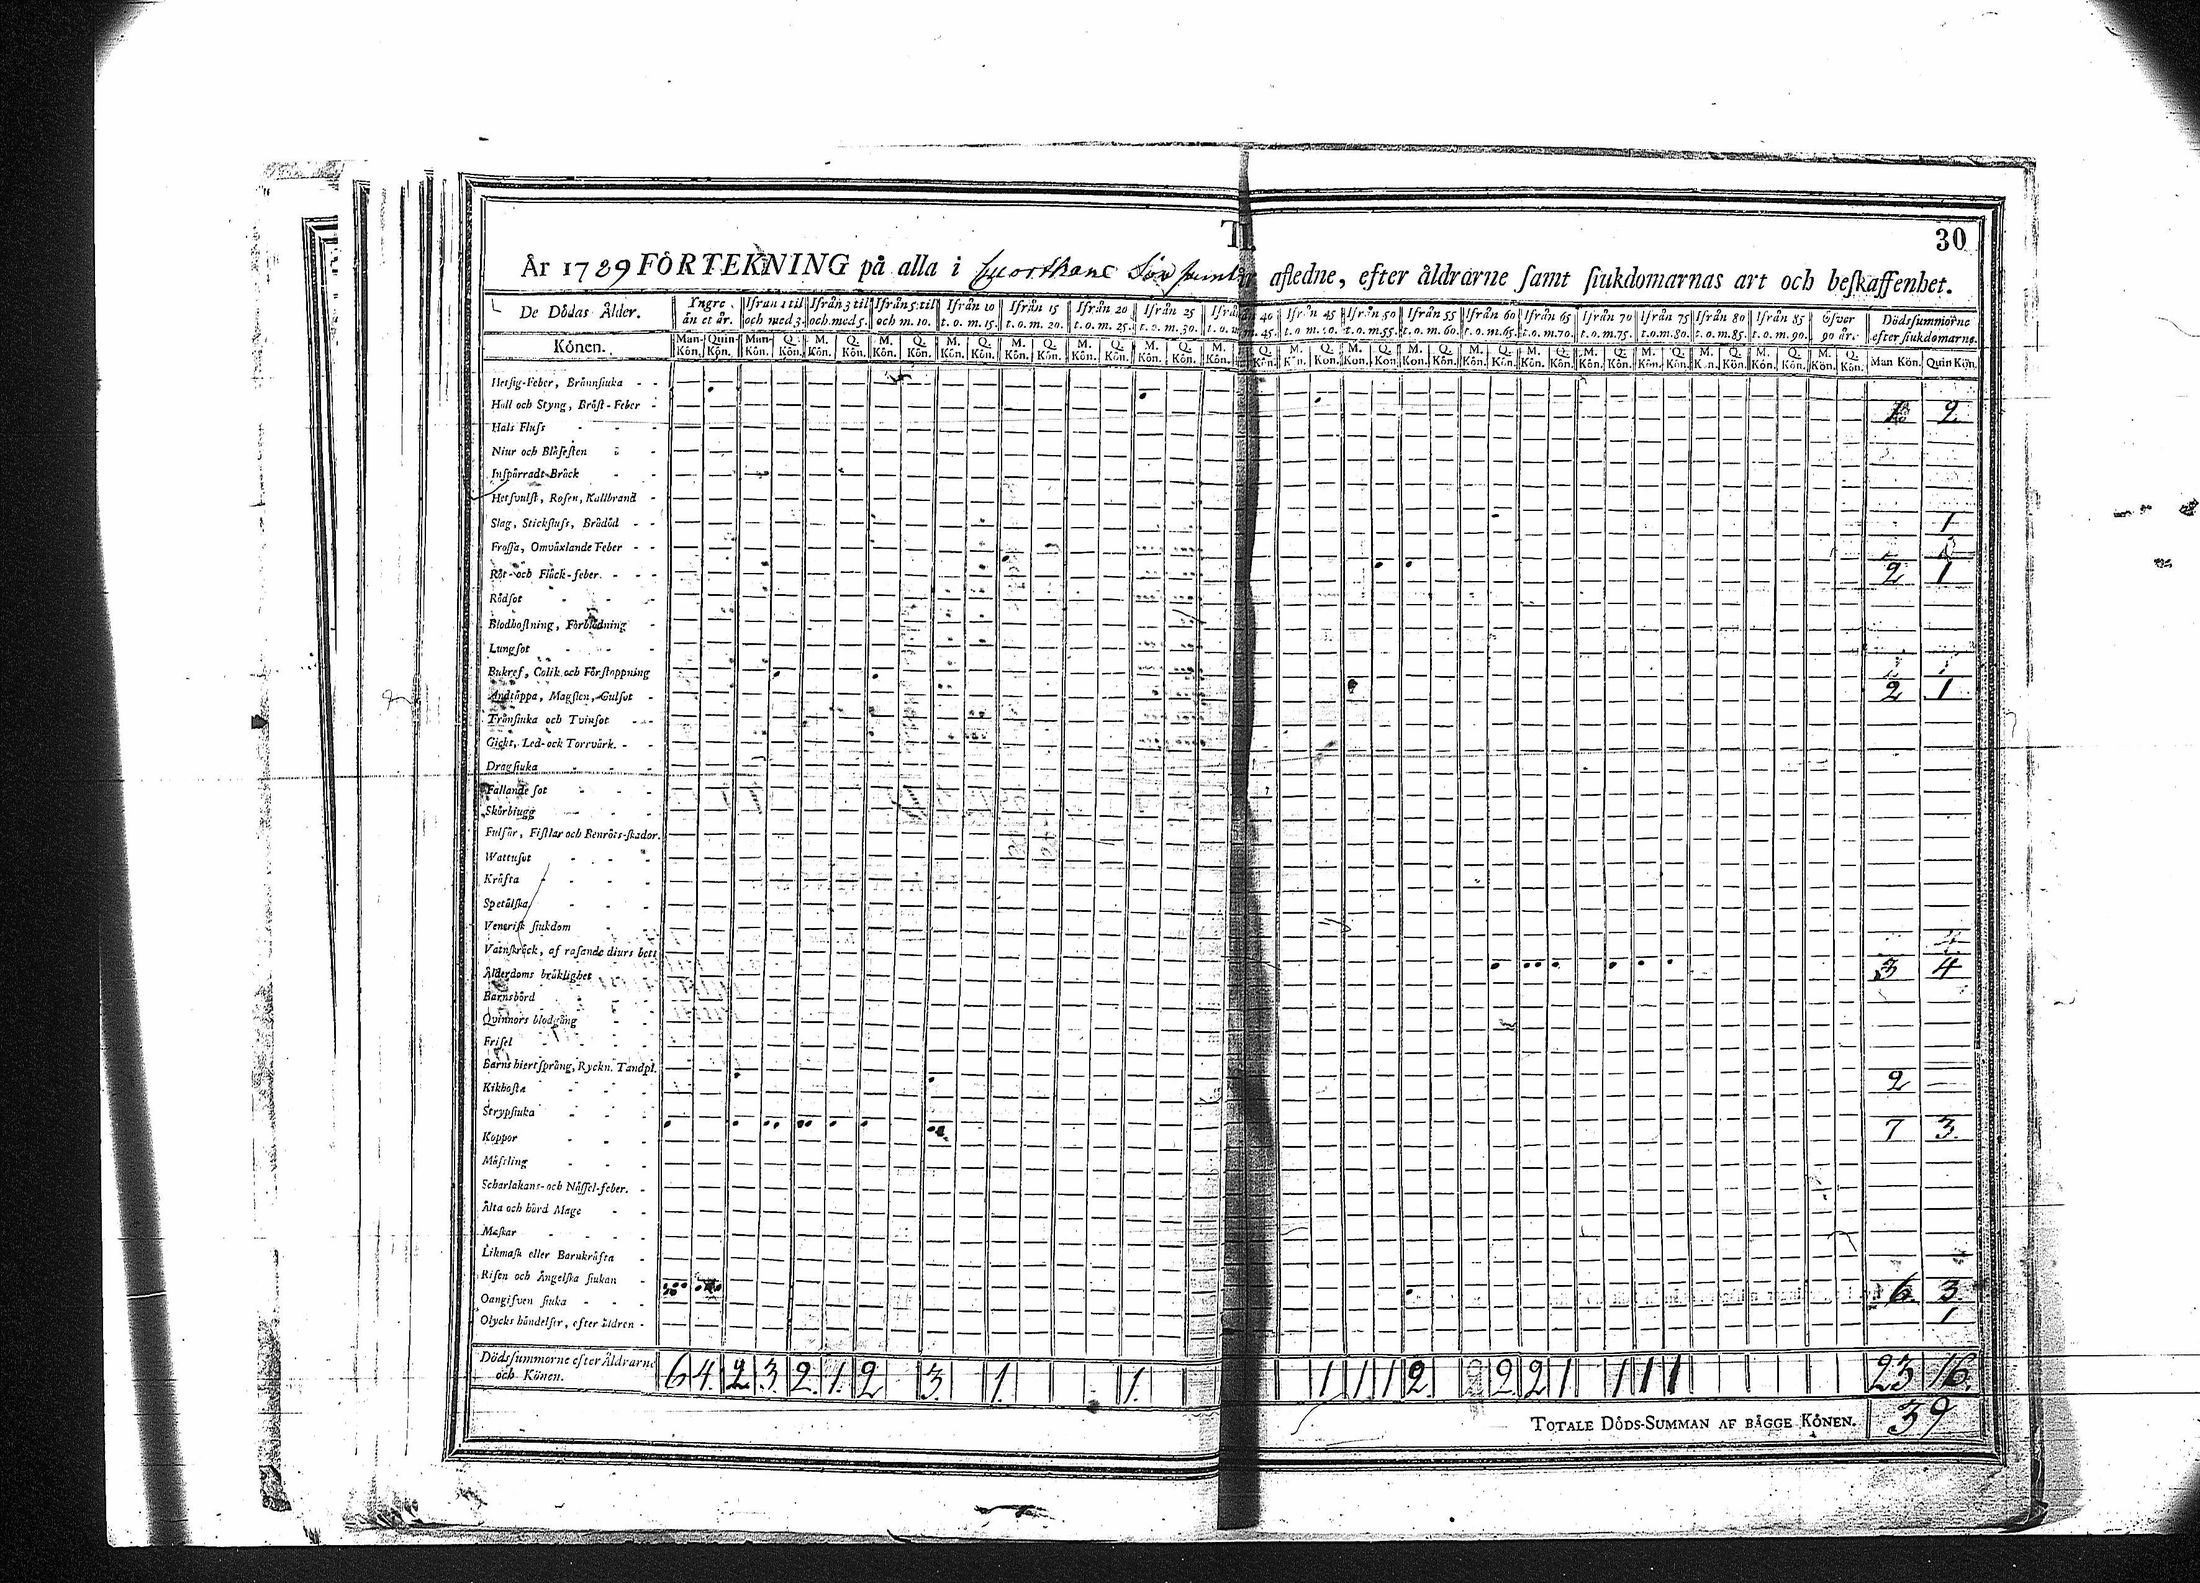 II.
30
År 1789 FÖRTEKNING på alla i Församling afledne, efter åldrarne samt siukdomarnas art och beskaffenhet.
De Dödas Ålder. Yngre än et år. Ifrån 1 til och med 3. Ifrån 3 til och med 5. Ifrån 5 til och m. 10. Ifrån 10 t. o. m. 15. Ifrån 15 t. o. m. 20. Ifrån 20 t. o. m. 25. Ifrån 25 t. o. m. 30. Ifrån 45 t. o. m. 50. Ifrån 50 t. o. m. 55. Ifrån 55 t. o. m. 60. Ifrån 60 t. o. m. 65. Ifrån 65 t. o. m. 70. Ifrån 70 t. o. m. 75. Ifrån 75 t. o. m. 80. Ifrån 80 t. o. m. 85. Ifrån 85 t. o. m. 90. Öfver 90 år. Dödssummorne efter siukdomarne.
Könen. Man-Kön. Quin-Kön. Man-Kön. Q. Kön. M. Kön. Q. Kön. M. Kön. Q. Kön. M. Kön. Q. Kön. M. Kön. Q. Kön. M. Kön. Q. Kön. M. Kön. Q. Kön. M. Kön. Q. Kön. M. Kön. Q. Kön. M. Kön. Q. Kön. M. Kön. Q. Kön. M. Kön. Q. Kön. M. Kön. Q. Kön. M. Kön. Q. Kön. M. Kön. Q. Kön. M. Kön. Q. Kön. M. Kön. Q. Kön. M. Kön. Q. Kön. Man Kön. Quin Kön.
Hetsig-Feber, Brännsiuka
Håll och Styng, Bröst-Feber 2
Hals Fluss
Niur och Blåsesten
Inspärradt Bråck
Hetsvulst, Rosen, Kallbrand
Slag, Stickfluss, Brådöd 1
Frossa, Omväxlande Feber
Röt- och Fläck-feber. 2 1
Rödsot
Blodhostning, Förblödning
Lungsot
Bukref, Colik och Förstoppning
Andtäppa, Magsten, Gulsot 2 1
Trånsiuka och Tvinsot
Gicht, Led- ock Torrvärk.
Dragsiuka
Fallande sot
Skörbiugg
Fulsår, Fistlar och Benröts-skador.
Wattusot
Kräfta
Spetälska
Venerisk siukdom
Vatnskräck, af rasande diurs bett
Ålderdoms bräklighet 3 4
Barnsbörd
Qvinnors blodgång
Frisel
Barns hiertsprång, Ryckn. Tandpl.
Kikhosta 2
Strypsiuka
Koppor 7 3
Mässling
Scharlakans- och Nässel-feber.
Älta och hård Mage
Maskar
Likmask eller Barnkräfta
Risen och Ängelska siukan
Oangifven siuka 6 3
Olycks händelser, efter äldren 1
Dödssummorne efter Åldrarne och Könen. 6 4 2 3 2 1 2 3 1 1 1 1 1 2 2 2 1 1 1 1 23 16
TOTALE DÖDS-SUMMAN AF BÄGGE KÖNEN. 39